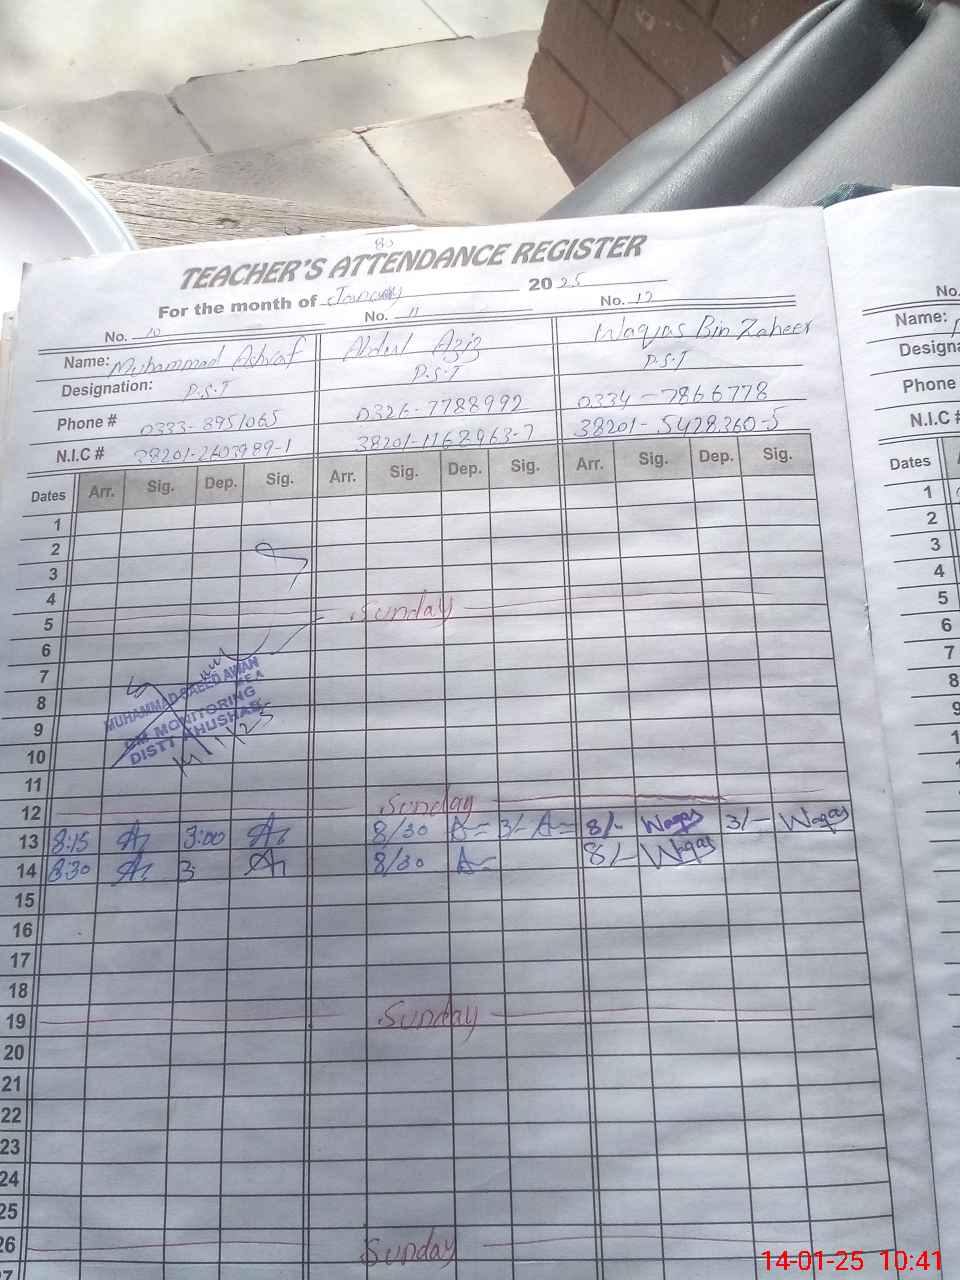 80
TEACHER'S ATTENDANCE REGISTER
For the month of January 2025
No. 10 No. 11 No. 12
Name: Muhammad Ashraf Abdul Aziz Waqas Bin Zaheer
Designation: P.S.T P.S.T P.S.T
Phone # 0333-8951065 0326-7788992 0334-7866778
N.I.C # 38201-2603989-1 38201-1162963-7 38201-5428360-5
Dates Arr. Sig. Dep. Sig. Arr. Sig. Dep. Sig. Arr. Sig. Dep. Sig.
1
2
3
4
5 Sunday
6
7
8
9
10
11
12 Sunday
13 8:15 3:00 8/30 3/- 8/- Waqas 3/- Waqas
14 8:30 3: 8/30 8/- Waqas
15
16
17
18
19 Sunday
20
21
22
23
24
25
26 Sunday
27
MUHAMMAD SAEED AWAN
MEA
MONITORING
DISTT KHUSHAB
14/1/25
No.
Name:
Designa
Phone
N.I.C #
Dates
1
2
3
4
5
6
7
8
9
1
1
14-01-25 10:41